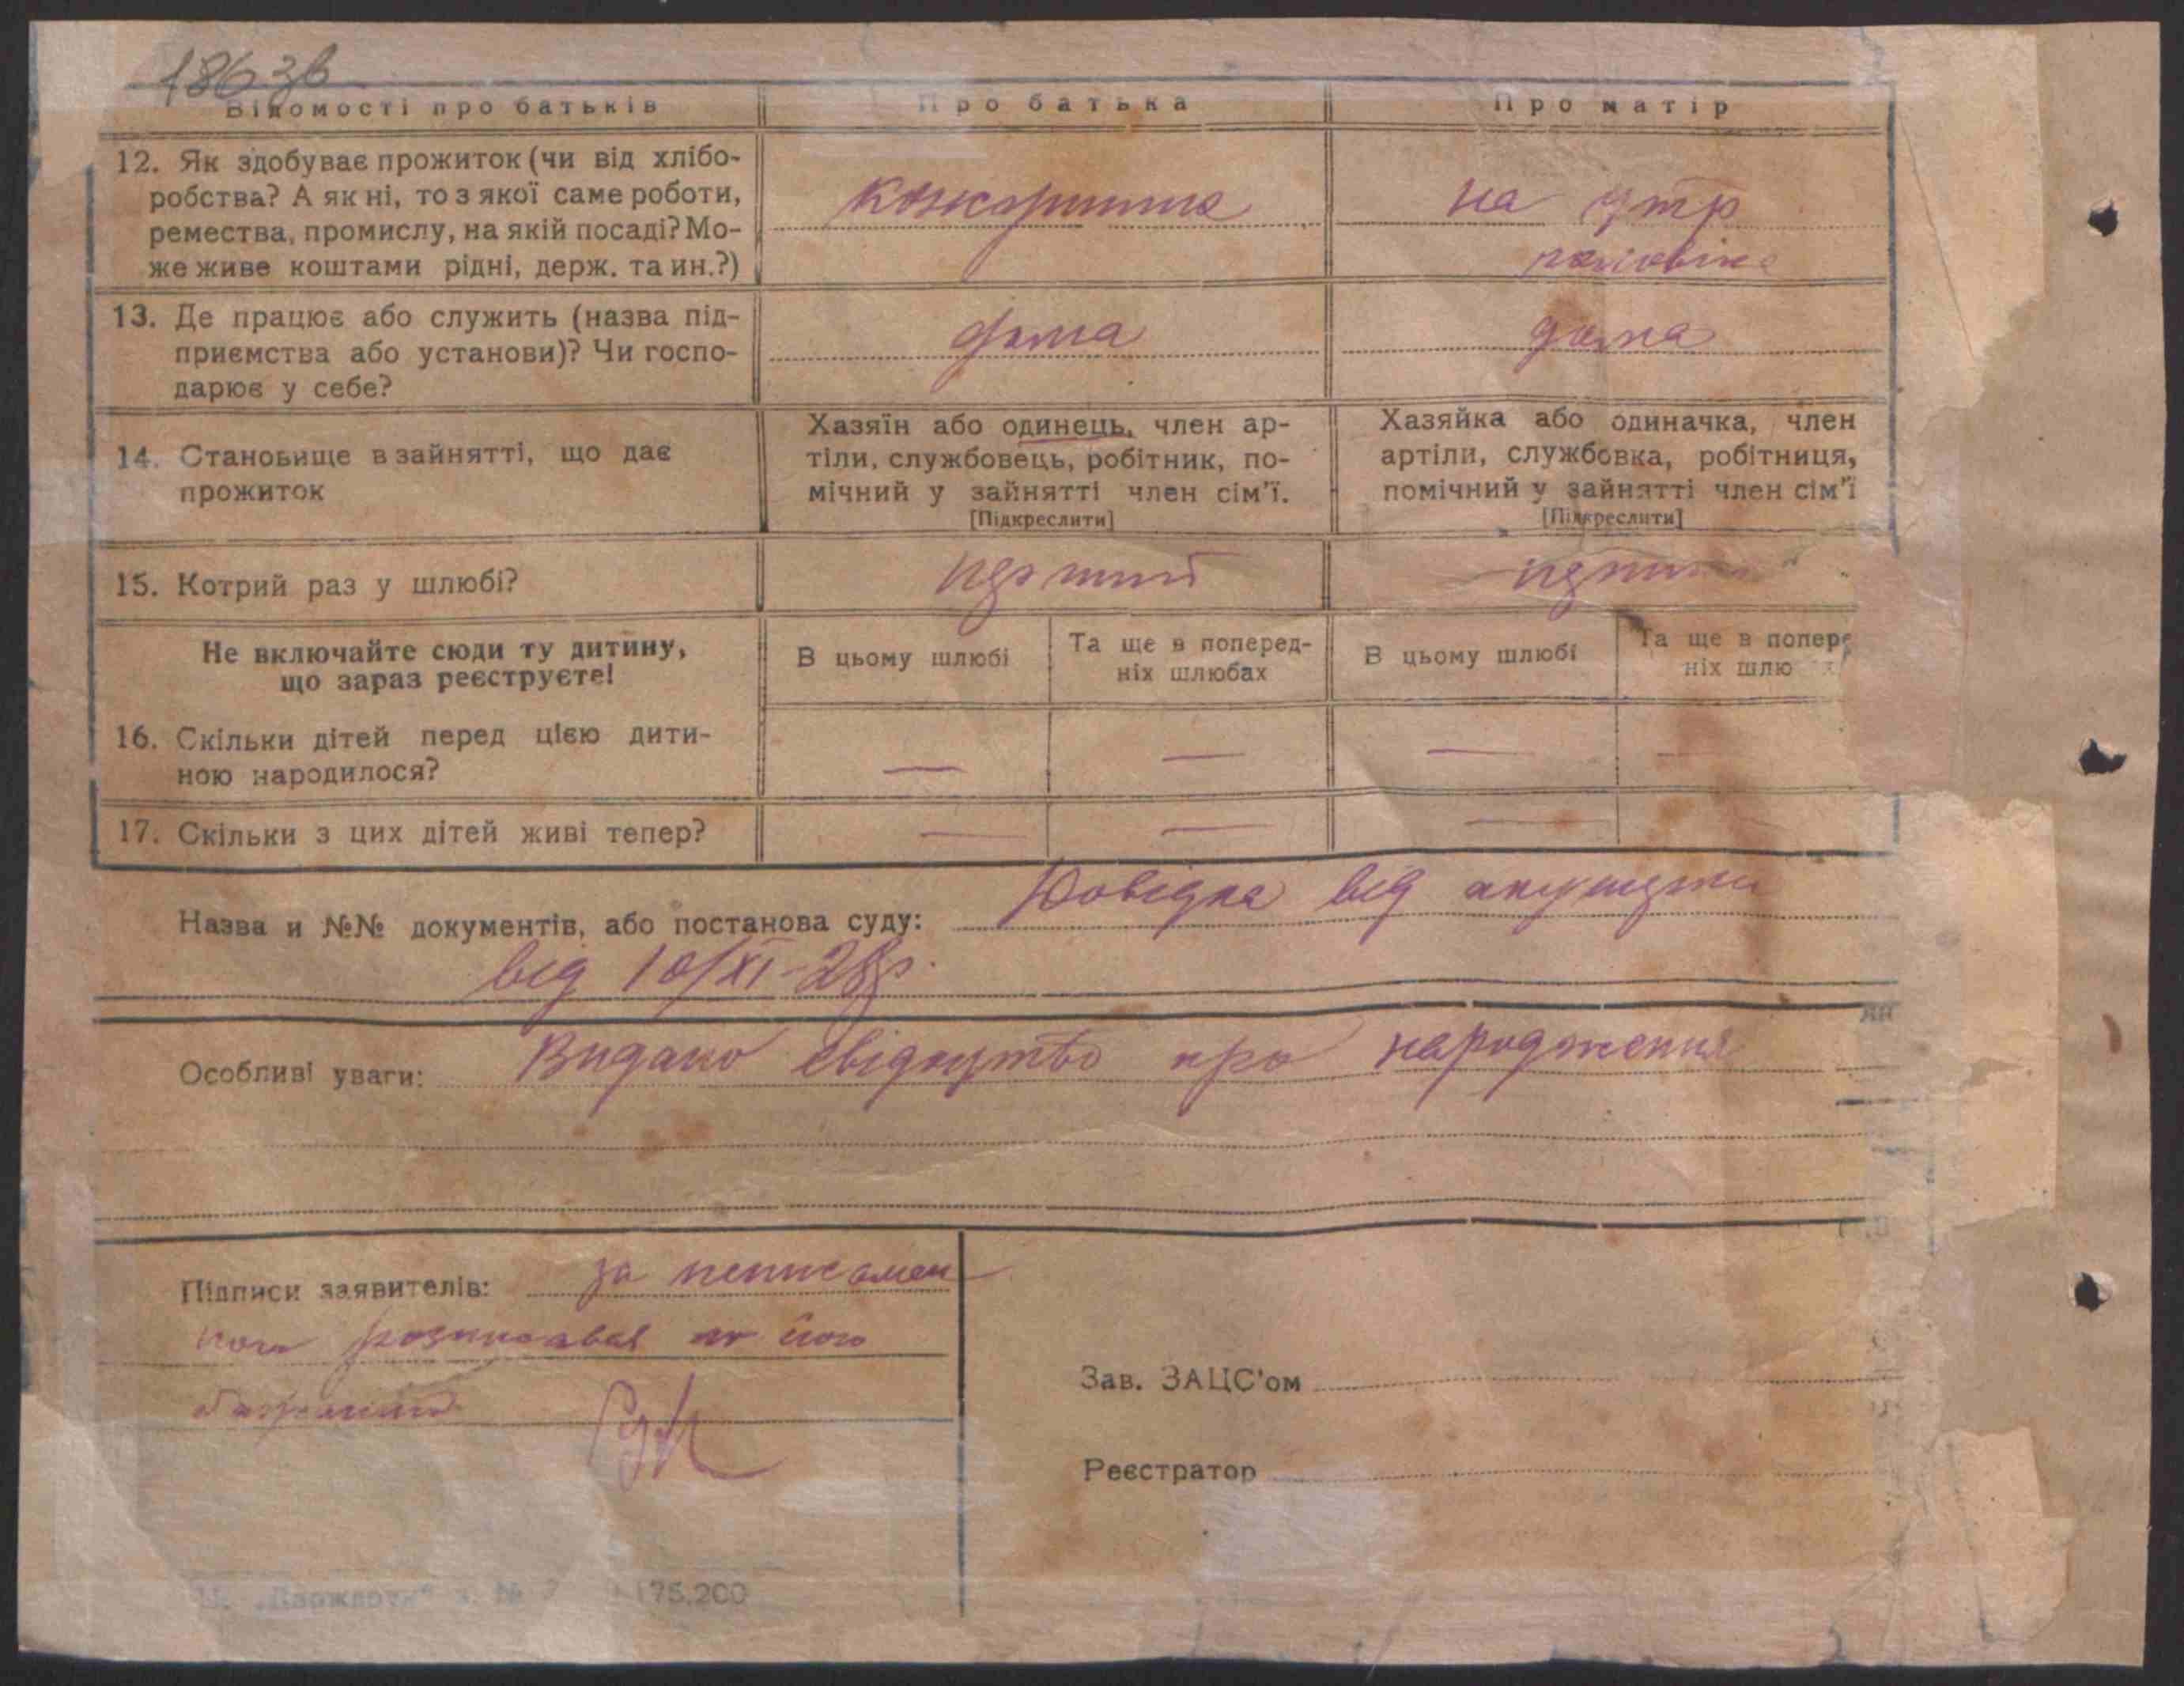 186 зв
Відомості про батьків
Про батька
Про матір
12. Як здобуває прожиток (чи від хлібо-
робства? А як ні, то з якої саме роботи,
ремества, промислу, на якій посаді? Мо-
же живе коштами рідні, держ. та ин.?)
на утр
13. Де працює або служить (назва під-
приємства або установи)? Чи госпо-
дарює у себе?
дома
дома
14. Становище в зайнятті, що дає
прожиток
Хазяїн або одинець, член ар-
тіли, службовець, робітник, по-
мічний у зайнятті член сім'ї.
[Підкреслити]
Хазяйка або одиначка, член
артіли, службовка, робітниця,
помічний у зайнятті член сім'ї
[Підкреслити]
15. Котрий раз у шлюбі?
перший
Не включайте сюди ту дитину,
що зараз реєструєте!
В цьому шлюбі
Та ще в поперед-
ніх шлюбах
В цьому шлюбі
Та ще в попере
ніх шлю
16. Скільки дітей перед цією дити-
ною народилося?
— — — —
17. Скільки з цих дітей живі тепер?
— — —
Назва и №№ документів, або постанова суду: Довідка від акушерки
від 10/XI-28р.
Особливі уваги: Видано свідоцтво про народження
Підписи заявителів: за неписьмен
ного розписався по його
Зав. ЗАЦС'ом
Реєстратор
175.200